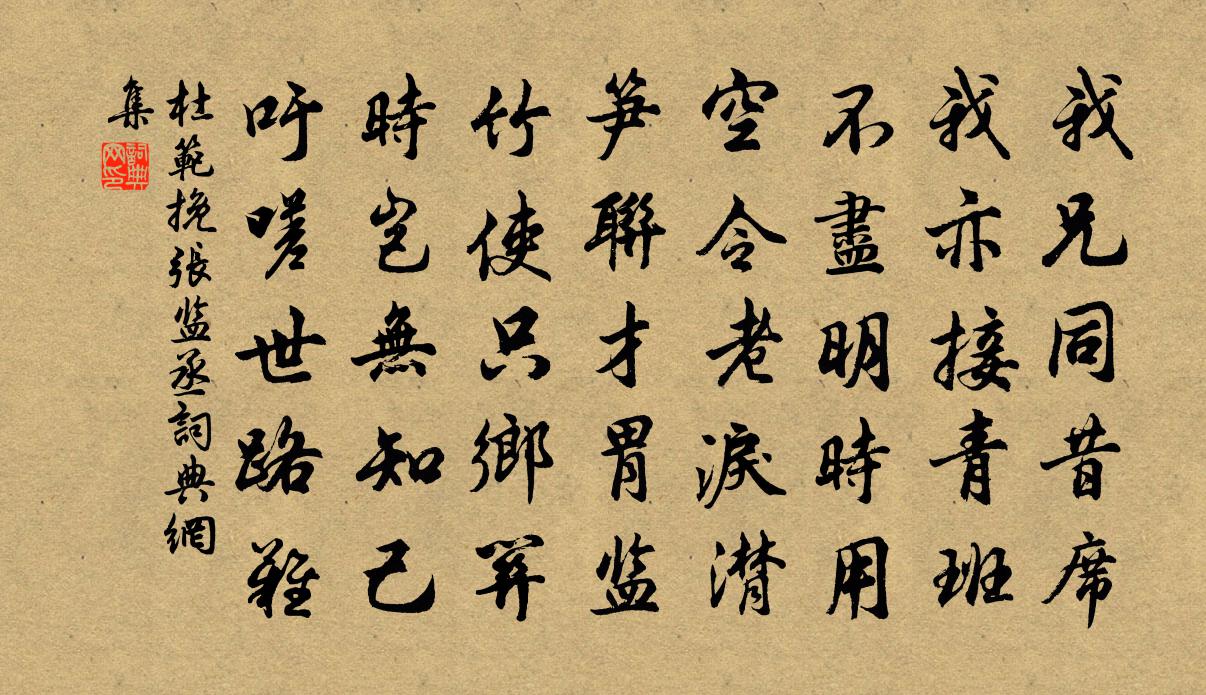 我兄同昔席
我亦接青班
不盡明時用
空令老淚潸
笋聯才胄监
竹使只鄉關
時豈無知己
吁嗟世路難
杜範挽張监丞詞典網
集
詞典网印